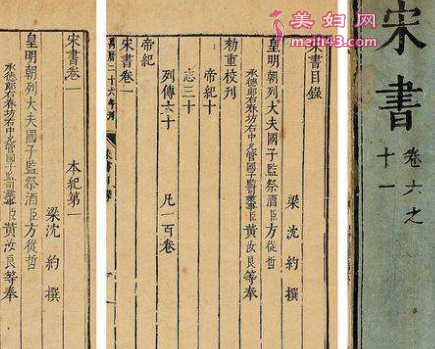 美妇网
宋書
卷六之
十一
宋書目錄
梁沈約撰
皇明朝列大夫國子監祭酒臣方從哲
承德郎右春坊右中允管國子監司業事臣黃汝良等奉
勅重校刊
帝紀十
志三十
列傳六十 凡一百卷
帝紀
宋書卷一
萬曆二十六年刊
宋書卷一 本紀第一
梁沈約撰
皇明朝列大夫國子監祭酒臣方從哲
承德郎右春坊右中允管國子監司業事臣黃汝良等奉